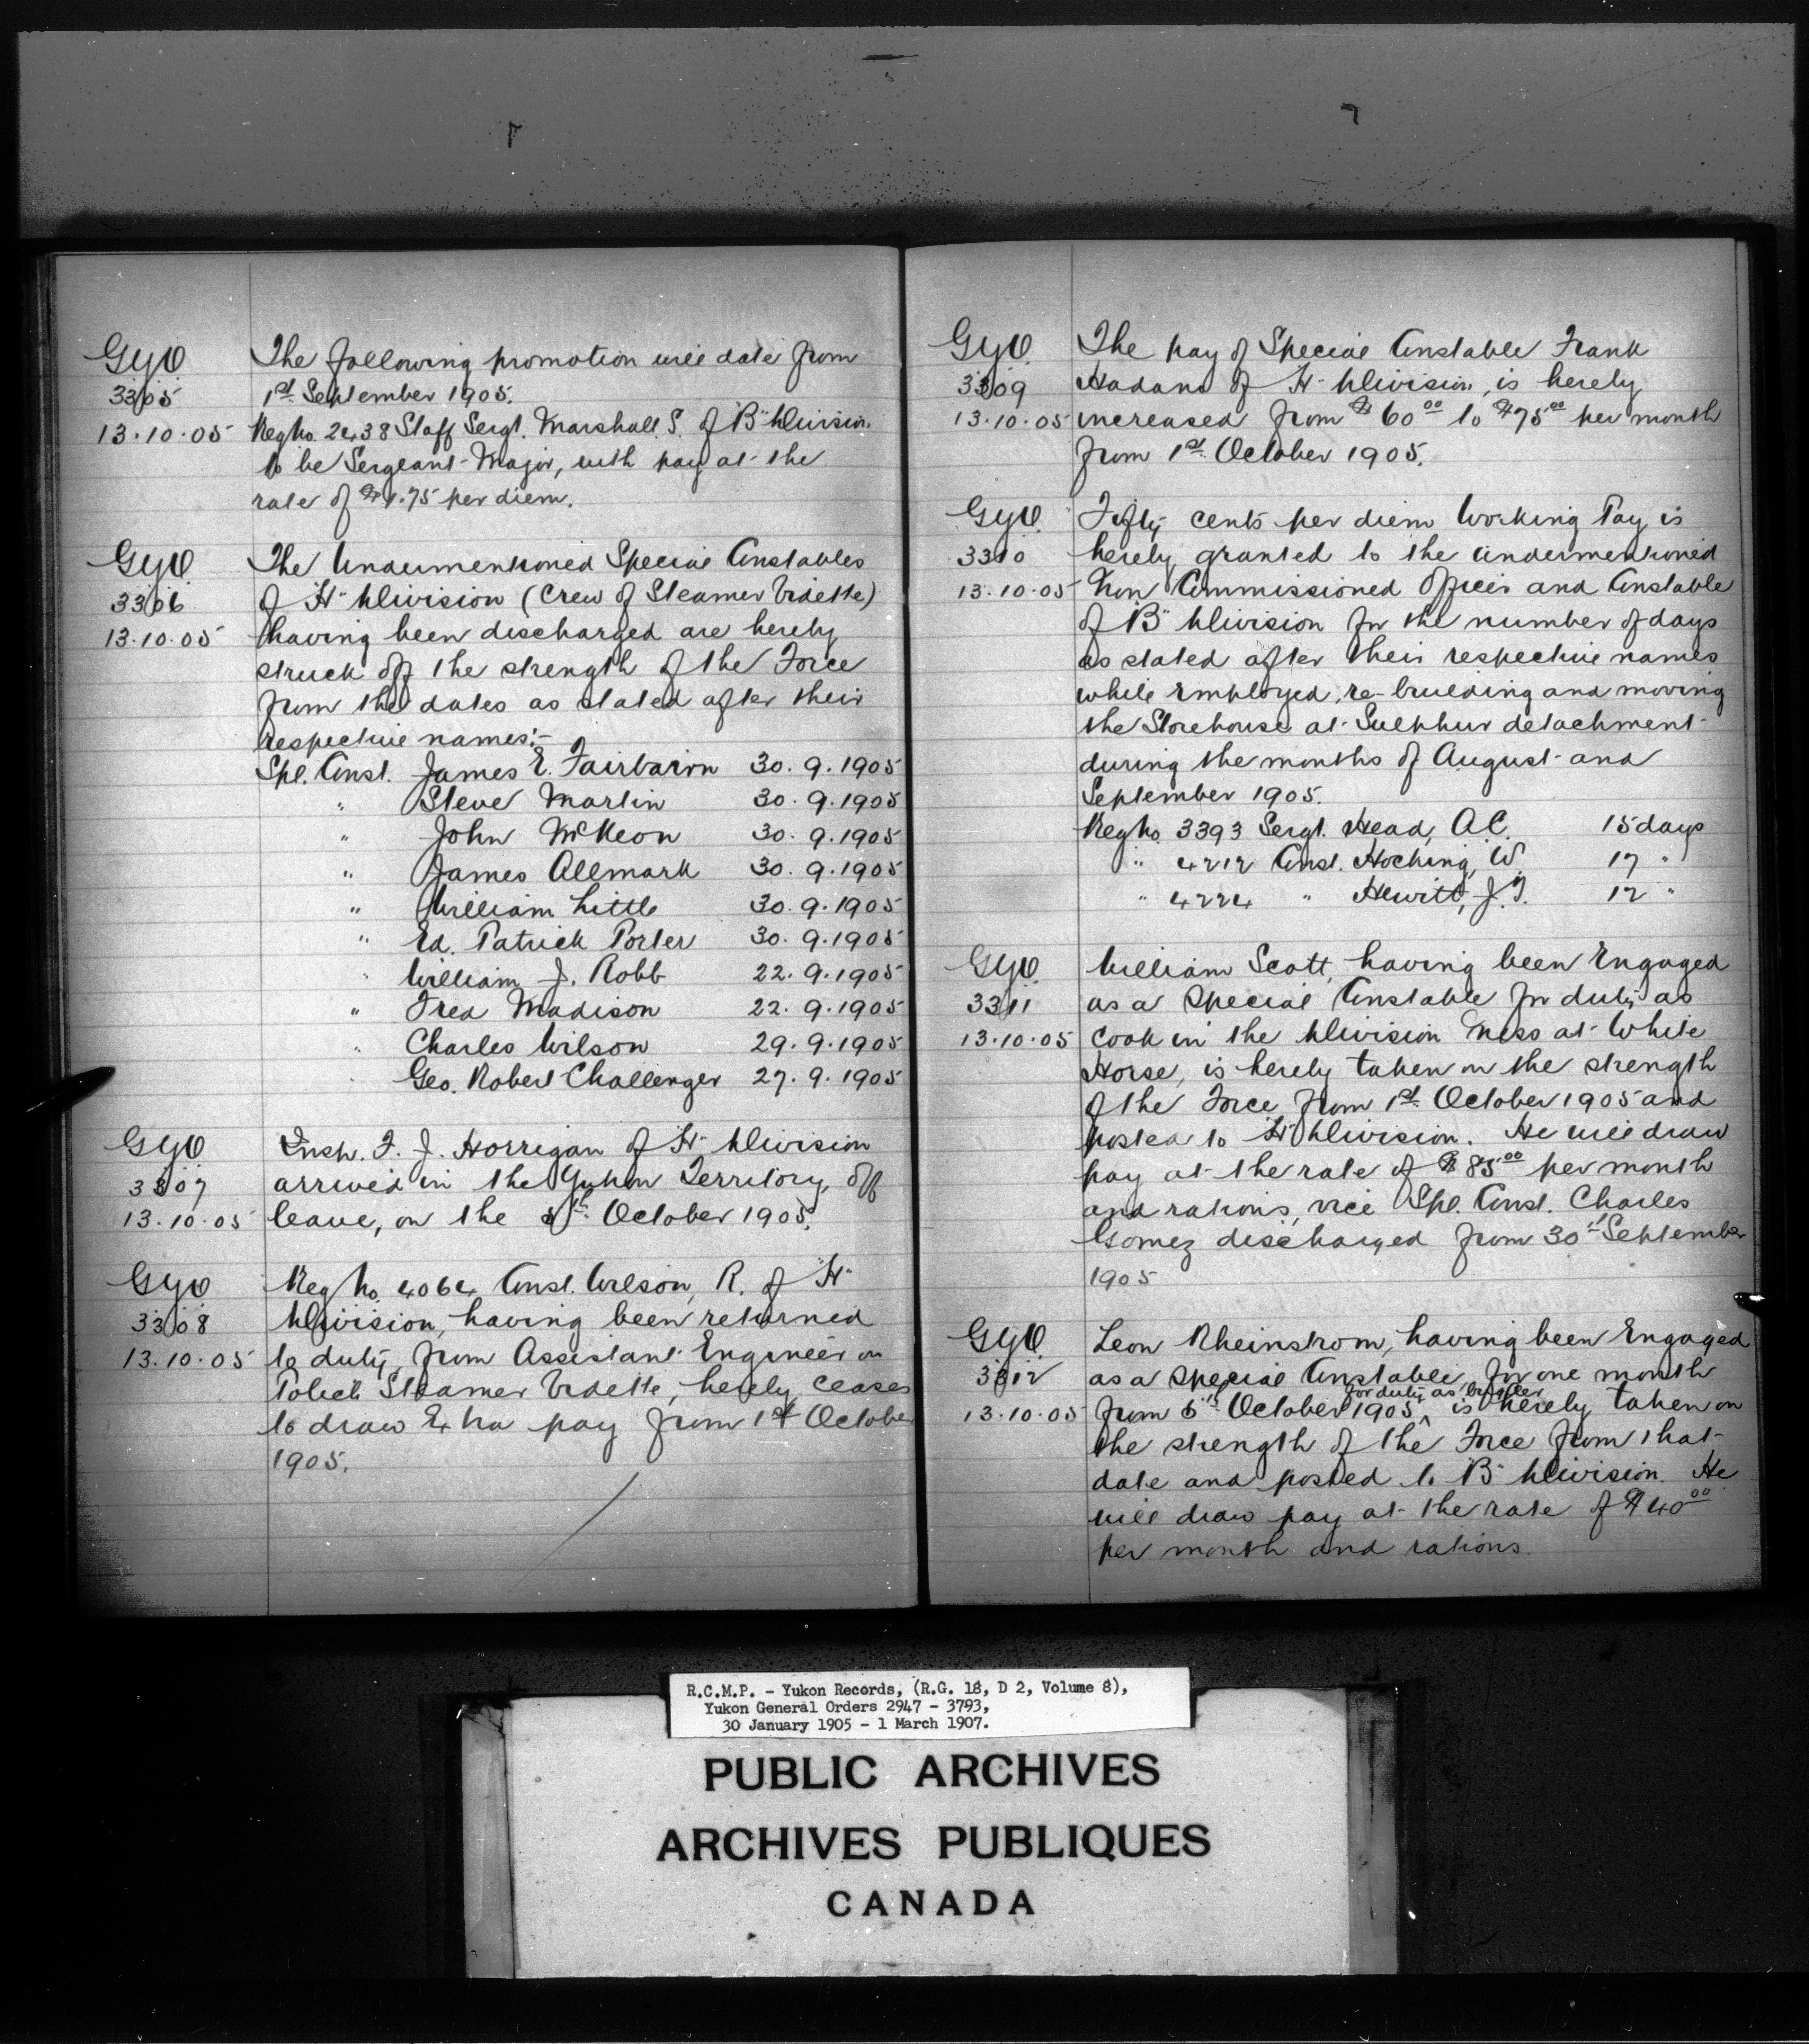 GYO
3305
13.10.05
The following promotion will date from
1st September 1905.
Reg No. 2438 Staff Sergt. Marshall. S. of "B" Division
to be Sergeant-Major, with pay at the
rate of $1.75 per diem.
GYO
3306
13.10.05
The Undermentioned Special Constables
of "H" Division (Crew of Steamer Vidette)
having been discharged are hereby
struck off the strength of the Force
from the dates as stated after their
respective names:-
Spl. Const. James E. Fairbairn 30. 9. 1905
" Steve Martin 30. 9. 1905
" John McKeon 30. 9. 1905
" James Allmark 30. 9. 1905
" William Little 30. 9. 1905
" Ed. Patrick Porter 30. 9. 1905
" William J. Robb 22. 9. 1905
" Fred Madison 22. 9. 1905
" Charles Wilson 29. 9. 1905
" Geo. Robert Challenger 27. 9. 1905
GYO
3307
13.10.05
Insp. F. J. Horrigan of "H" Division
arrived in the Yukon Territory, off
leave, on the October 1905.
GYO
3308
13.10.05
Reg No. 4064 Const. Wilson, R. of "H"
Division, having been returned
to duty, from Assistant Engineer on
Police Steamer Vidette, hereby ceases
to draw Extra pay from 1st October
1905.
GYO
3309
13.10.05
The pay of Special Constable Frank
of "H" Division, is hereby
increased from $60.00 to $75.00 per month
from 1st October 1905.
GYO
3310
13.10.05
Fifty cents per diem Working Pay is
hereby granted to the undermentioned
Non Commissioned Officer and Constable
of "B" Division for the number of days
as stated after their respective names
while employed, re-building and moving
the Storehouse at Sulphur detachment
during the months of August and
September 1905.
Reg No. 3393 Sergt. Head, A.C. 15 days
" 4212 Const. Hocking, W. 17 "
" 4224 " Hewitt, J.F. 12 "
GYO
3311
13.10.05
William Scott, having been Engaged
as a Special Constable for duty as
Cook in the Division Mess at White
Horse, is hereby taken on the strength
of the Force from 1st October 1905 and
posted to "H" Division. He will draw
pay at the rate of $85.00 per month
and rations, vice Spl. Const. Charles
Gomez discharged from 30th September
1905
GYO
3312
13.10.05
Leon Rheinstrom, having been Engaged
as a Special Constable, for one month
for duty as
from October 1905 is hereby taken on
the strength of the Force from that
date and posted to "B" Division. He
will draw pay at the rate of $40.00
per month and rations.
R.C.M.P. - Yukon Records, (R.G. 18, D 2, Volume 8),
Yukon General Orders 2947 - 3793,
30 January 1905 - 1 March 1907.
PUBLIC ARCHIVES
ARCHIVES PUBLIQUES
CANADA